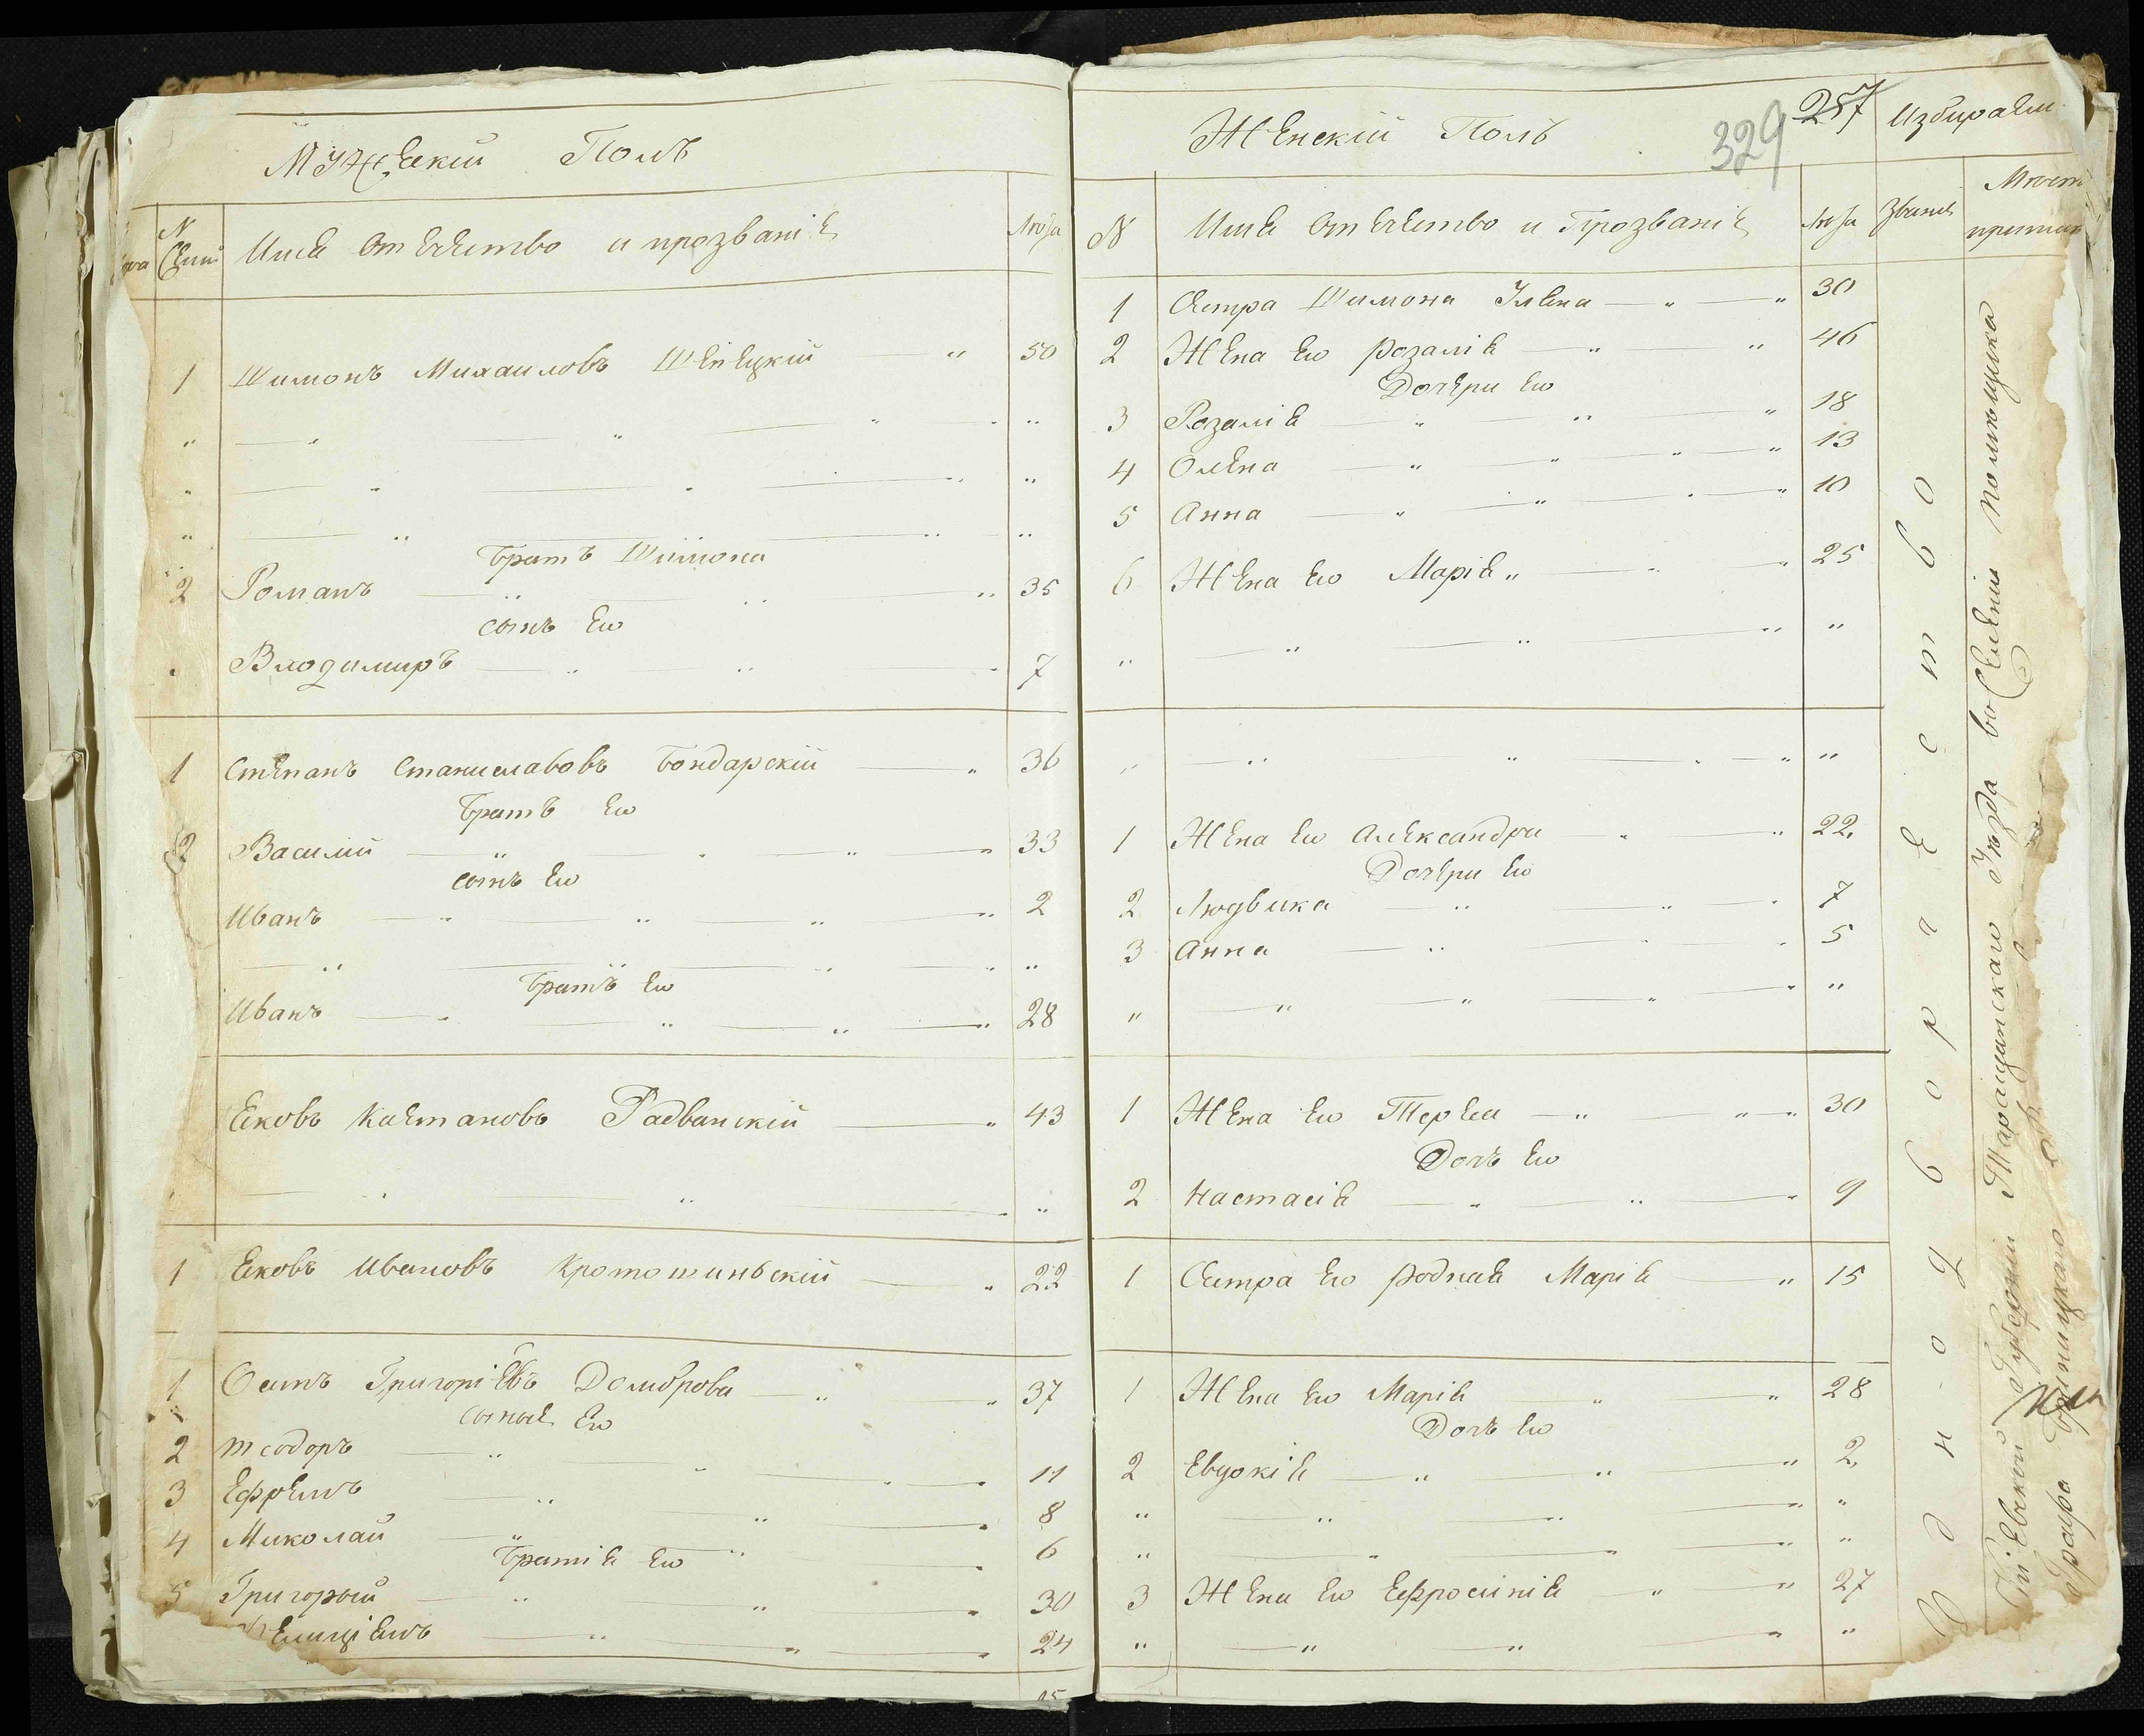 Мужескій Полъ
N Семей
Имя Отечество и прозваніе
Лѣта
1 Шимонъ Михаиловъ 50
Братъ Шимона
2 Романъ 35
сынъ Ею
Влодимиръ 7
1 Степанъ Станиславовъ Бондарскій 36
Братъ Ею
2 Василий 33
сынъ Ею
Иванъ 2
Братъ Ею
Иванъ 28
Яковъ Каетановъ Радванскій 43
1 Яковъ Ивановъ Кротошиньскій 22
1 Осипъ Григоріевъ Домброва 37
сыные Ею
2 Теодоръ 11
3 Ефремъ 8
4 Миколай 6
Братія Ею
5 Григорый 30
24
Женскій Полъ
329 257
Избираем
N Имя Отечество и Прозваніе
Лѣта
Званіе
1 Сестра Шимона Улена 30
2 Жена Ею Розалія 46
Дочери Ею
3 Розалія 18
4 Олена 13
5 Анна 10
6 Жена Ею Марія 25
1 Жена Ею Александра 22
Дочери Ею
2 Людвика 7
3 Анна 5
1 Жена Ею 30
Дочь Ею
2 Настасія 9
1 Сестра Ею родная Марія 15
1 Жена Ею Марія 28
Дочь Ею
2 Евдокія 2
3 Жена Ею Ефросинія 27
Однодворчество
Кіевской Губерніи Таращанскаго Уезда во Селеніи помещика
Графа